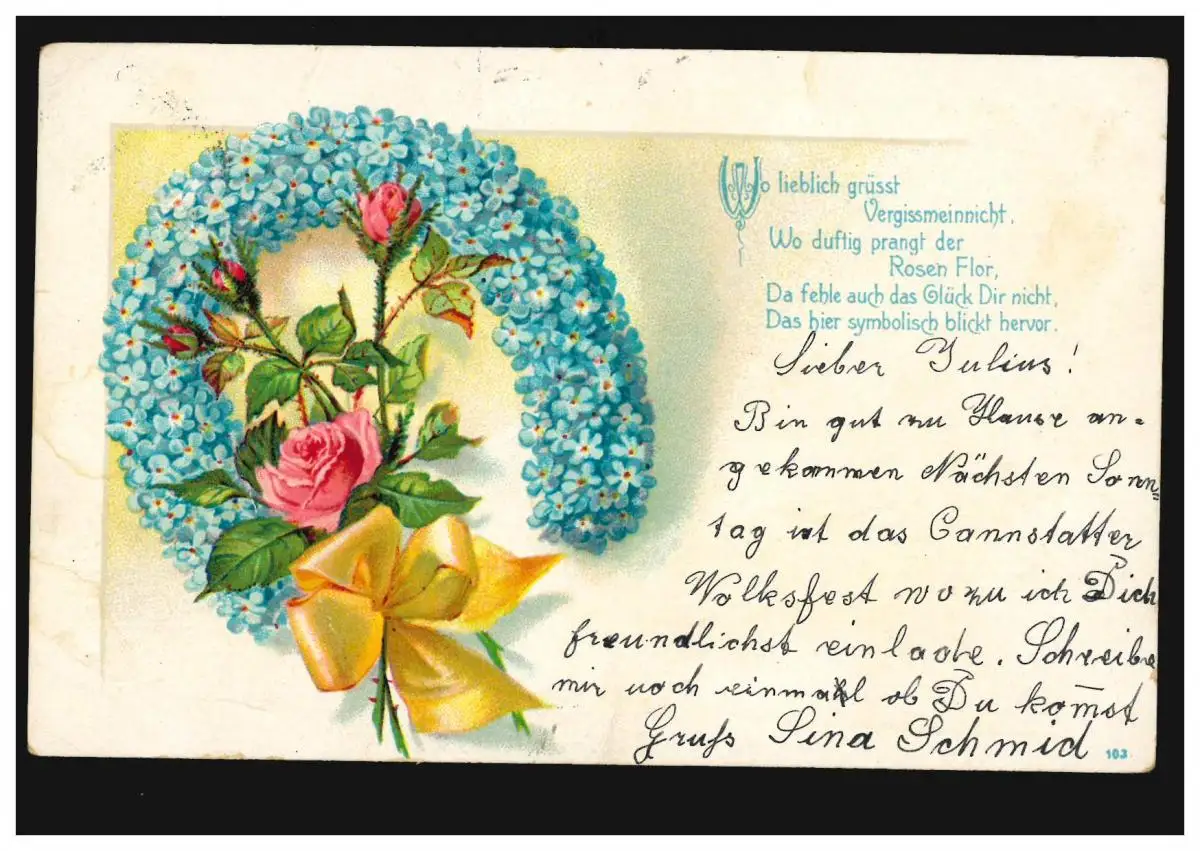 Wo lieblich grüsst
Vergissmeinnicht,
Wo duftig prangt der
Rosen Flor,
Da fehle auch das Glück Dir nicht,
Das hier symbolisch blickt hervor.
Lieber Julius!
Bin gut zu Hause an-
gekommen Nächsten Sonn=
tag ist das Cannstatter
Volksfest wozu ich Dich
freundlichst einlade. Schreibe
mir noch einmahl ob Du kom̄st
Gruß Lina Schmid
103